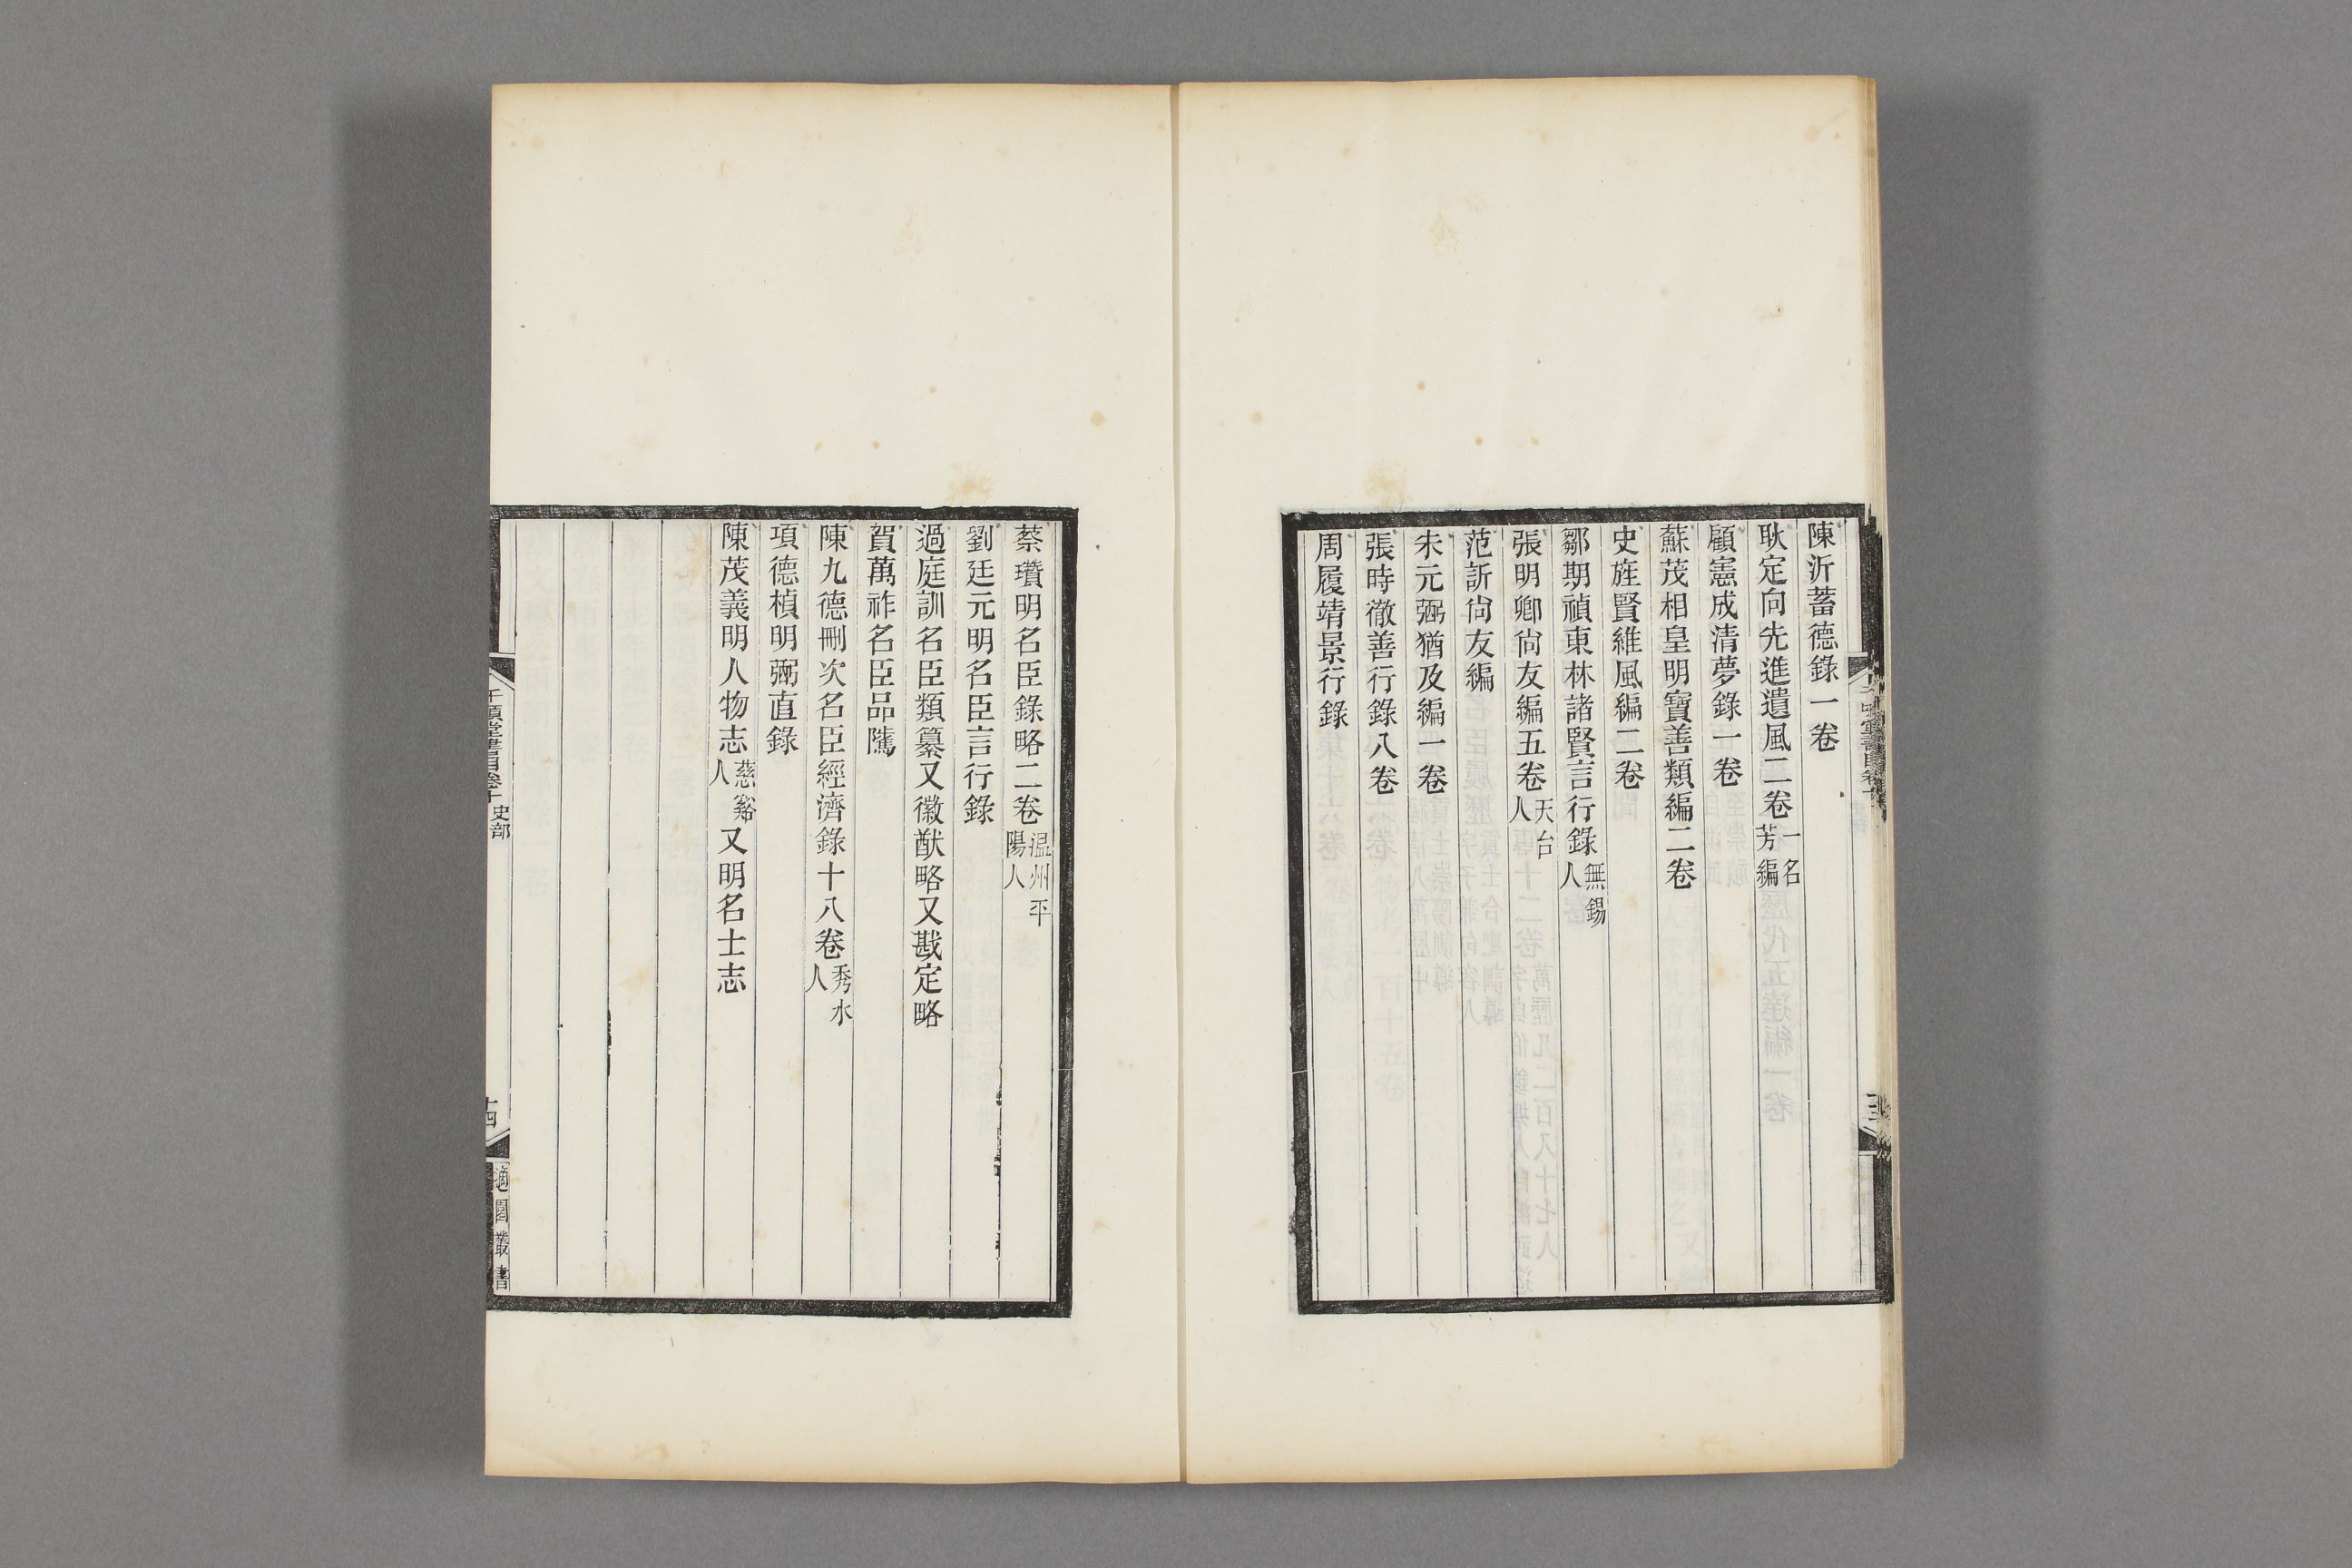 陳沂蓄德錄一卷
耿定向先進遺風二卷一名芳編
顧憲成清夢錄一卷
蘇茂相皇明寶善類編二卷
史旌賢維風編二卷
鄒期禎東林諸賢言行錄無錫人
張明卿尙友編五卷天台人
范訢尙友編
朱元弼猶及編一卷
張時徹善行錄八卷
周履靖景行錄
蔡瓚明名臣錄略二卷温州平陽人
劉廷元明名臣言行錄
過庭訓名臣類纂又徽猷略又戡定略
賀萬祚名臣品隲
陳九德刪次名臣經濟錄十八卷秀水人
項德楨明弼直錄
陳茂義明人物志慈谿人又明名士志
千頃堂書目卷十 史部
十四
適園叢書